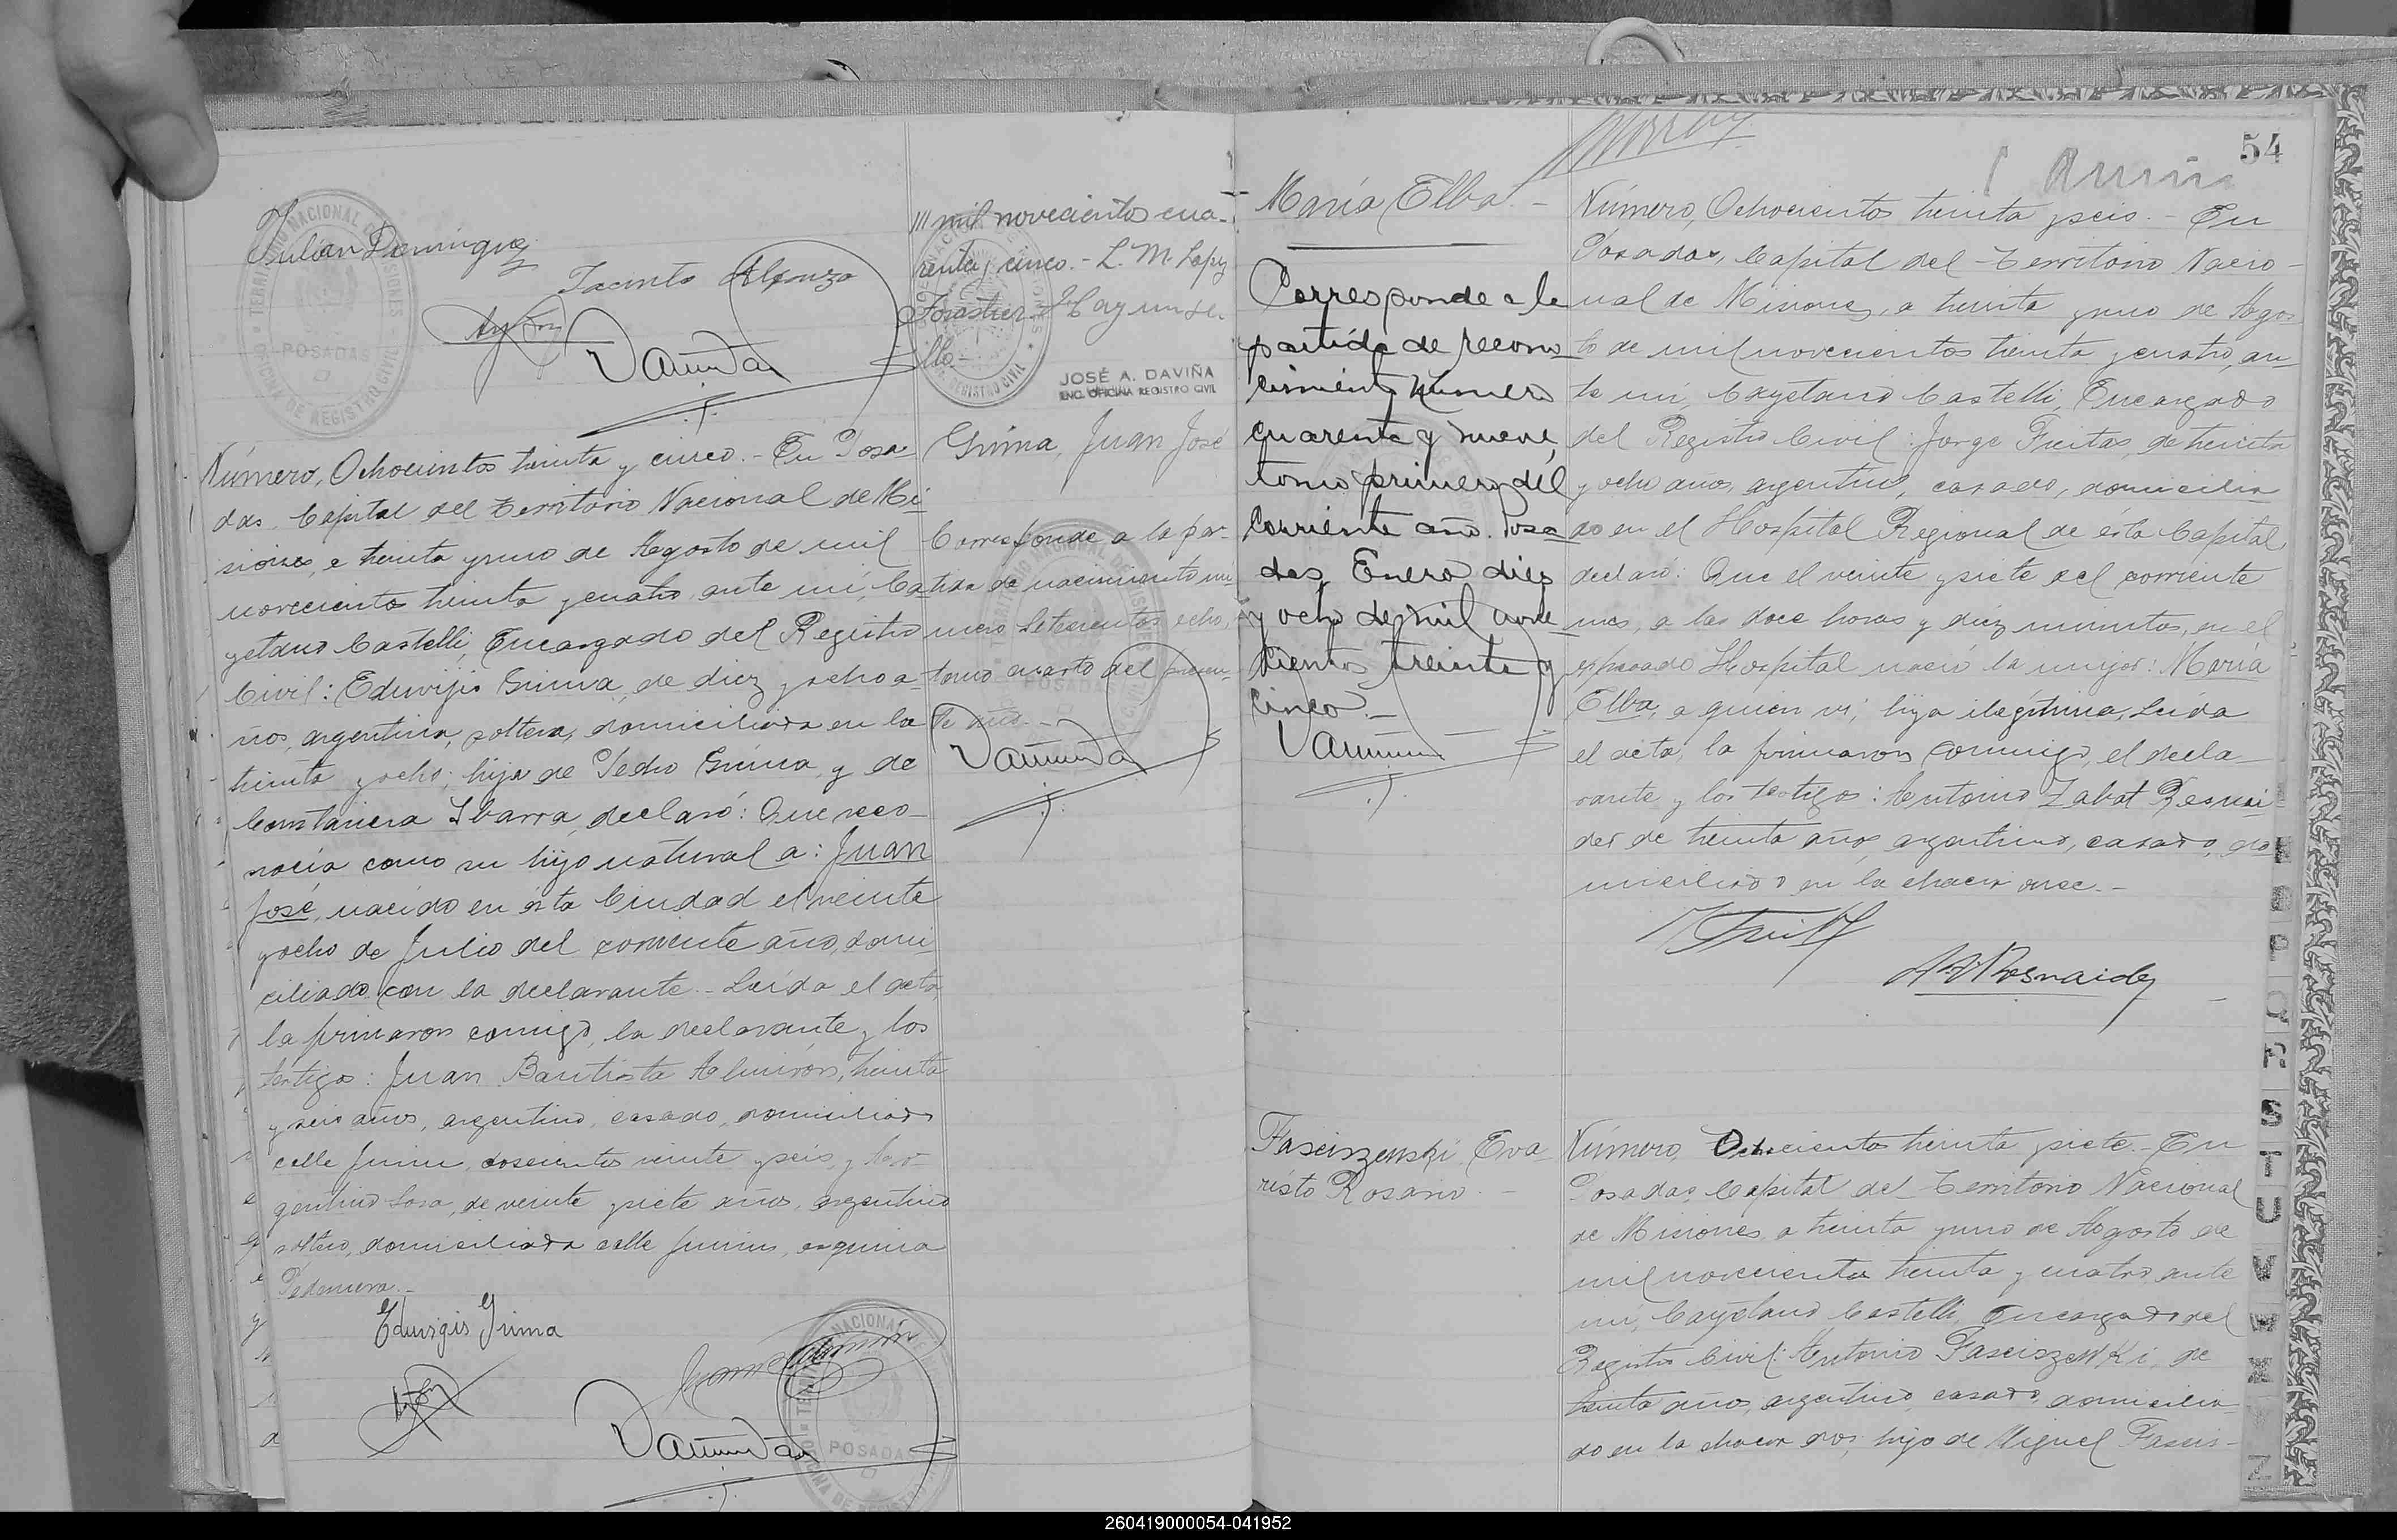 Julian Dominguez
Jacinto Alfonzo
mil novecientos cua-
renta y cinco.- L. M. Lopez
Forastier
JOSÉ A. DAVIÑA
ENC. OFICINA REGISTRO CIVIL
POSADAS
Número, Ochocientos treinta y cinco.- En Posa-
das, Capital del Territorio Nacional de Mi
siones, a treinta y uno de Agosto de mil
novecientos treinta y cuatro, ante mí, Ca
yetano Castelli, Encargado del Registro
Civil: Eduvijis Grima, de diez y ocho a-
ños, argentina, soltera, domiciliada en la
treinta y ocho; hija de Pedro Grima, y de
Constancia Ibarra, declaró: Que reco-
nocía como su hijo natural a: Juan
José, nacido en ésta Ciudad el veinte
y ocho de Julio del corriente año, domi-
ciliado con la declarante.- Leída el acta,
la firmaron conmigo, la declarante y los
testigos: Juan Bautista Almirón, treinta
y seis años, argentino, casado, domiciliado
calle Junin, doscientos veinte y seis, y Ar-
gentino Sosa, de veinte y siete años, argentino
soltero, domiciliado calle Junin, esquina
Pedernera.-
Eduvigis Grima
POSADAS
Grima, Juan José
Corresponde a la par-
tida de nacimiento nú
mero setecientos ocho,
tomo cuarto del presen-
te año.-
54
María Elba.-
Corresponde a la
partida de recono
cimiento número
cuarenta y nueve,
tomo primero del
corriente año. Posa
das, Enero diez
y ocho de mil nove-
cientos treinta y
cinco.-
Número, Ochocientos treinta y seis.- En
Posadas, Capital del Territorio Nacio-
nal de Misiones, a treinta y uno de Agos
to de mil novecientos treinta y cuatro, an-
te mí, Cayetano Castelli, Encargado
del Registro Civil: Jorge Freitas, de treinta
y ocho años, argentino, casado, domicilia
do en el Hospital Regional de ésta Capital,
declaró: Que el veinte y siete del corriente
mes, a las doce horas y diez minutos, en el
expresado Hospital nació la mujer: María
Elba, a quien vi; hija ilegítima. Leída
el acta, la firmaron conmigo, el decla-
rante y los testigos: Antonio Zabat Resnai
der de treinta años, argentino, casado, do
miciliado en la chacra once.-
Fasciszewski, Eva
risto Rosario.-
Número, Ochocientos treinta y siete.- En
Posadas, Capital del Territorio Nacional
de Misiones, a treinta y uno de Agosto de
mil novecientos treinta y cuatro, ante
mí, Cayetano Castelli, Encargado del
Registro Civil: Antonio Fasciszewski, de
treinta años, argentino, casado, domicilia-
do en la chacra dos; hijo de Miguel Fascis-
P
Q
R
S
T
U
V
W
X
Z
260419000054-041952